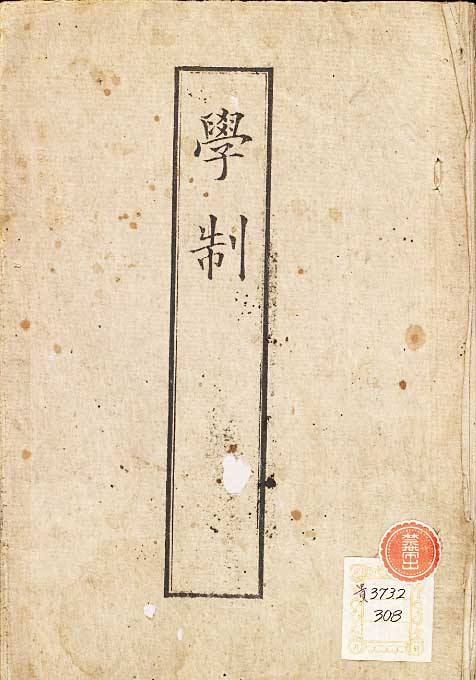 學制
貴3732
308